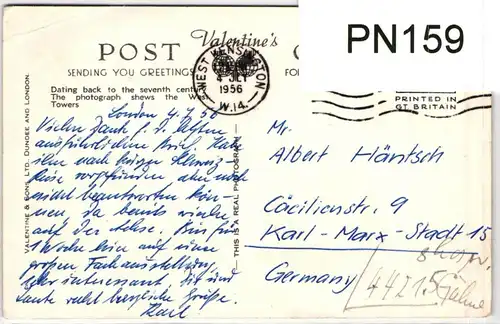 PN159
POST
Valentine's
C
SENDING YOU GREETINGS
FO
Dating back to the seventh centur
The photograph shews the West
Towers
WEST KENSINGTON
4 JLY
1956
W.14.
PRINTED IN
GT. BRITAIN
VALENTINE & SONS, LTD. DUNDEE AND LONDON.
THIS IS A REAL PHOTOGRAPH
London 4.7.56
Vielen Dank f. d.
ausführlichen Brief. Habe
ihn nach kurzer Schweiz-
Reise vorgefunden aber noch
nicht beantworten kön-
nen, da bereits wieder
auf der Achse. Bin für
1 Woche hier auf einer
großen Fachausstellung,
sehr interessant,
heute recht herzliche Grüße.
Karl
Mr.
Albert Häntsch
Cäcilienstr. 9
Karl-Marx-Stadt 15
Germany
44215